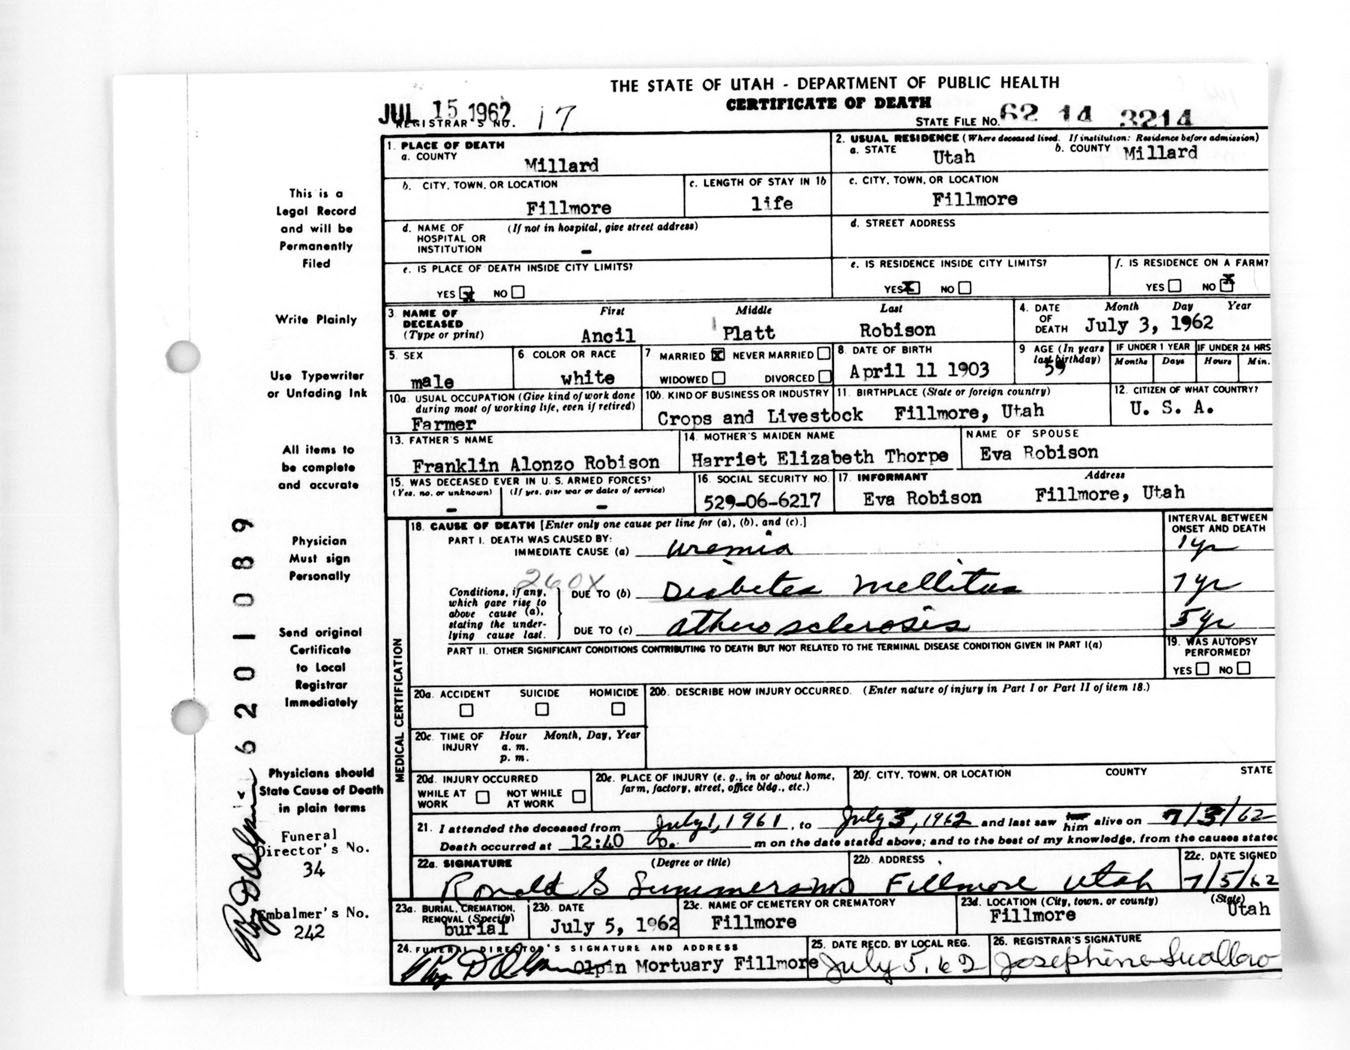 THE STATE OF UTAH - DEPARTMENT OF PUBLIC HEALTH
CERTIFICATE OF DEATH
JUL 15 1962
REGISTRAR'S NO. 17
STATE FILE NO. 62 14 3214
1. PLACE OF DEATH
a. COUNTY Millard
2. USUAL RESIDENCE (Where deceased lived. If institution: Residence before admission)
a. STATE Utah b. COUNTY Millard
b. CITY, TOWN, OR LOCATION Fillmore
c. LENGTH OF STAY IN 1b life
c. CITY, TOWN, OR LOCATION Fillmore
d. NAME OF HOSPITAL OR INSTITUTION (If not in hospital, give street address) -
d. STREET ADDRESS
e. IS PLACE OF DEATH INSIDE CITY LIMITS?
YES x NO
e. IS RESIDENCE INSIDE CITY LIMITS?
YES x NO
f. IS RESIDENCE ON A FARM?
YES NO x
3 NAME OF DECEASED (Type or print)
First Middle Last
Ancil Platt Robison
4. DATE OF DEATH Month Day Year
July 3, 1962
5. SEX male
6 COLOR OR RACE white
7 MARRIED x NEVER MARRIED
WIDOWED DIVORCED
8 DATE OF BIRTH April 11 1903
9 AGE (In years last birthday) 59
IF UNDER 1 YEAR Months Days
IF UNDER 24 HRS Hours Min.
10a. USUAL OCCUPATION (Give kind of work done during most of working life, even if retired)
Farmer
10b. KIND OF BUSINESS OR INDUSTRY
Crops and Livestock
11. BIRTHPLACE (State or foreign country)
Fillmore, Utah
12. CITIZEN OF WHAT COUNTRY?
U. S. A.
13. FATHER'S NAME
Franklin Alonzo Robison
14. MOTHER'S MAIDEN NAME
Harriet Elizabeth Thorpe
NAME OF SPOUSE
Eva Robison
15. WAS DECEASED EVER IN U. S. ARMED FORCES?
(Yes, no, or unknown) (If yes, give war or dates of service)
- -
16. SOCIAL SECURITY NO.
529-06-6217
17. INFORMANT Address
Eva Robison Fillmore, Utah
MEDICAL CERTIFICATION
18. CAUSE OF DEATH [Enter only one cause per line for (a), (b), and (c).]
INTERVAL BETWEEN ONSET AND DEATH
PART I. DEATH WAS CAUSED BY:
IMMEDIATE CAUSE (a) uremia 1 yr
260X
Conditions, if any, which gave rise to above cause (a), stating the underlying cause last.
DUE TO (b) Diabetes mellitus 7 yr
DUE TO (c) atherosclerosis 5 yr
PART II. OTHER SIGNIFICANT CONDITIONS CONTRIBUTING TO DEATH BUT NOT RELATED TO THE TERMINAL DISEASE CONDITION GIVEN IN PART I(a)
19. WAS AUTOPSY PERFORMED?
YES NO
20a. ACCIDENT SUICIDE HOMICIDE
20b. DESCRIBE HOW INJURY OCCURRED. (Enter nature of injury in Part I or Part II of item 18.)
20c. TIME OF INJURY Hour Month, Day, Year
a. m.
p. m.
20d. INJURY OCCURRED
WHILE AT WORK NOT WHILE AT WORK
20e. PLACE OF INJURY (e. g., in or about home, farm, factory, street, office bldg., etc.)
20f. CITY, TOWN, OR LOCATION COUNTY STATE
21. I attended the deceased from July 1, 1961, to July 3, 1962 and last saw her him alive on 7/3/62
Death occurred at 12:40 p. m on the date stated above; and to the best of my knowledge, from the causes stated
22a. SIGNATURE (Degree or title)
Ronald S Summers MD
22b. ADDRESS
Fillmore Utah
22c. DATE SIGNED
7/5/62
23a. BURIAL, CREMATION, REMOVAL (Specify)
burial
23b. DATE
July 5, 1962
23c. NAME OF CEMETERY OR CREMATORY
Fillmore
23d. LOCATION (City, town, or county) (State)
Fillmore Utah
24. FUNERAL DIRECTOR'S SIGNATURE AND ADDRESS
Olpin Mortuary Fillmore
25. DATE RECD. BY LOCAL REG.
July 5, 62
26. REGISTRAR'S SIGNATURE
Josephine Swallow
This is a
Legal Record
and will be
Permanently
Filed
Write Plainly
Use Typewriter
or Unfading Ink
All items to
be complete
and accurate
Physician
Must sign
Personally
Send original
Certificate
to Local
Registrar
Immediately
Physicians should
State Cause of Death
in plain terms
Funeral
Director's No.
34
Embalmer's No.
242
6 2 0 1 0 8 9